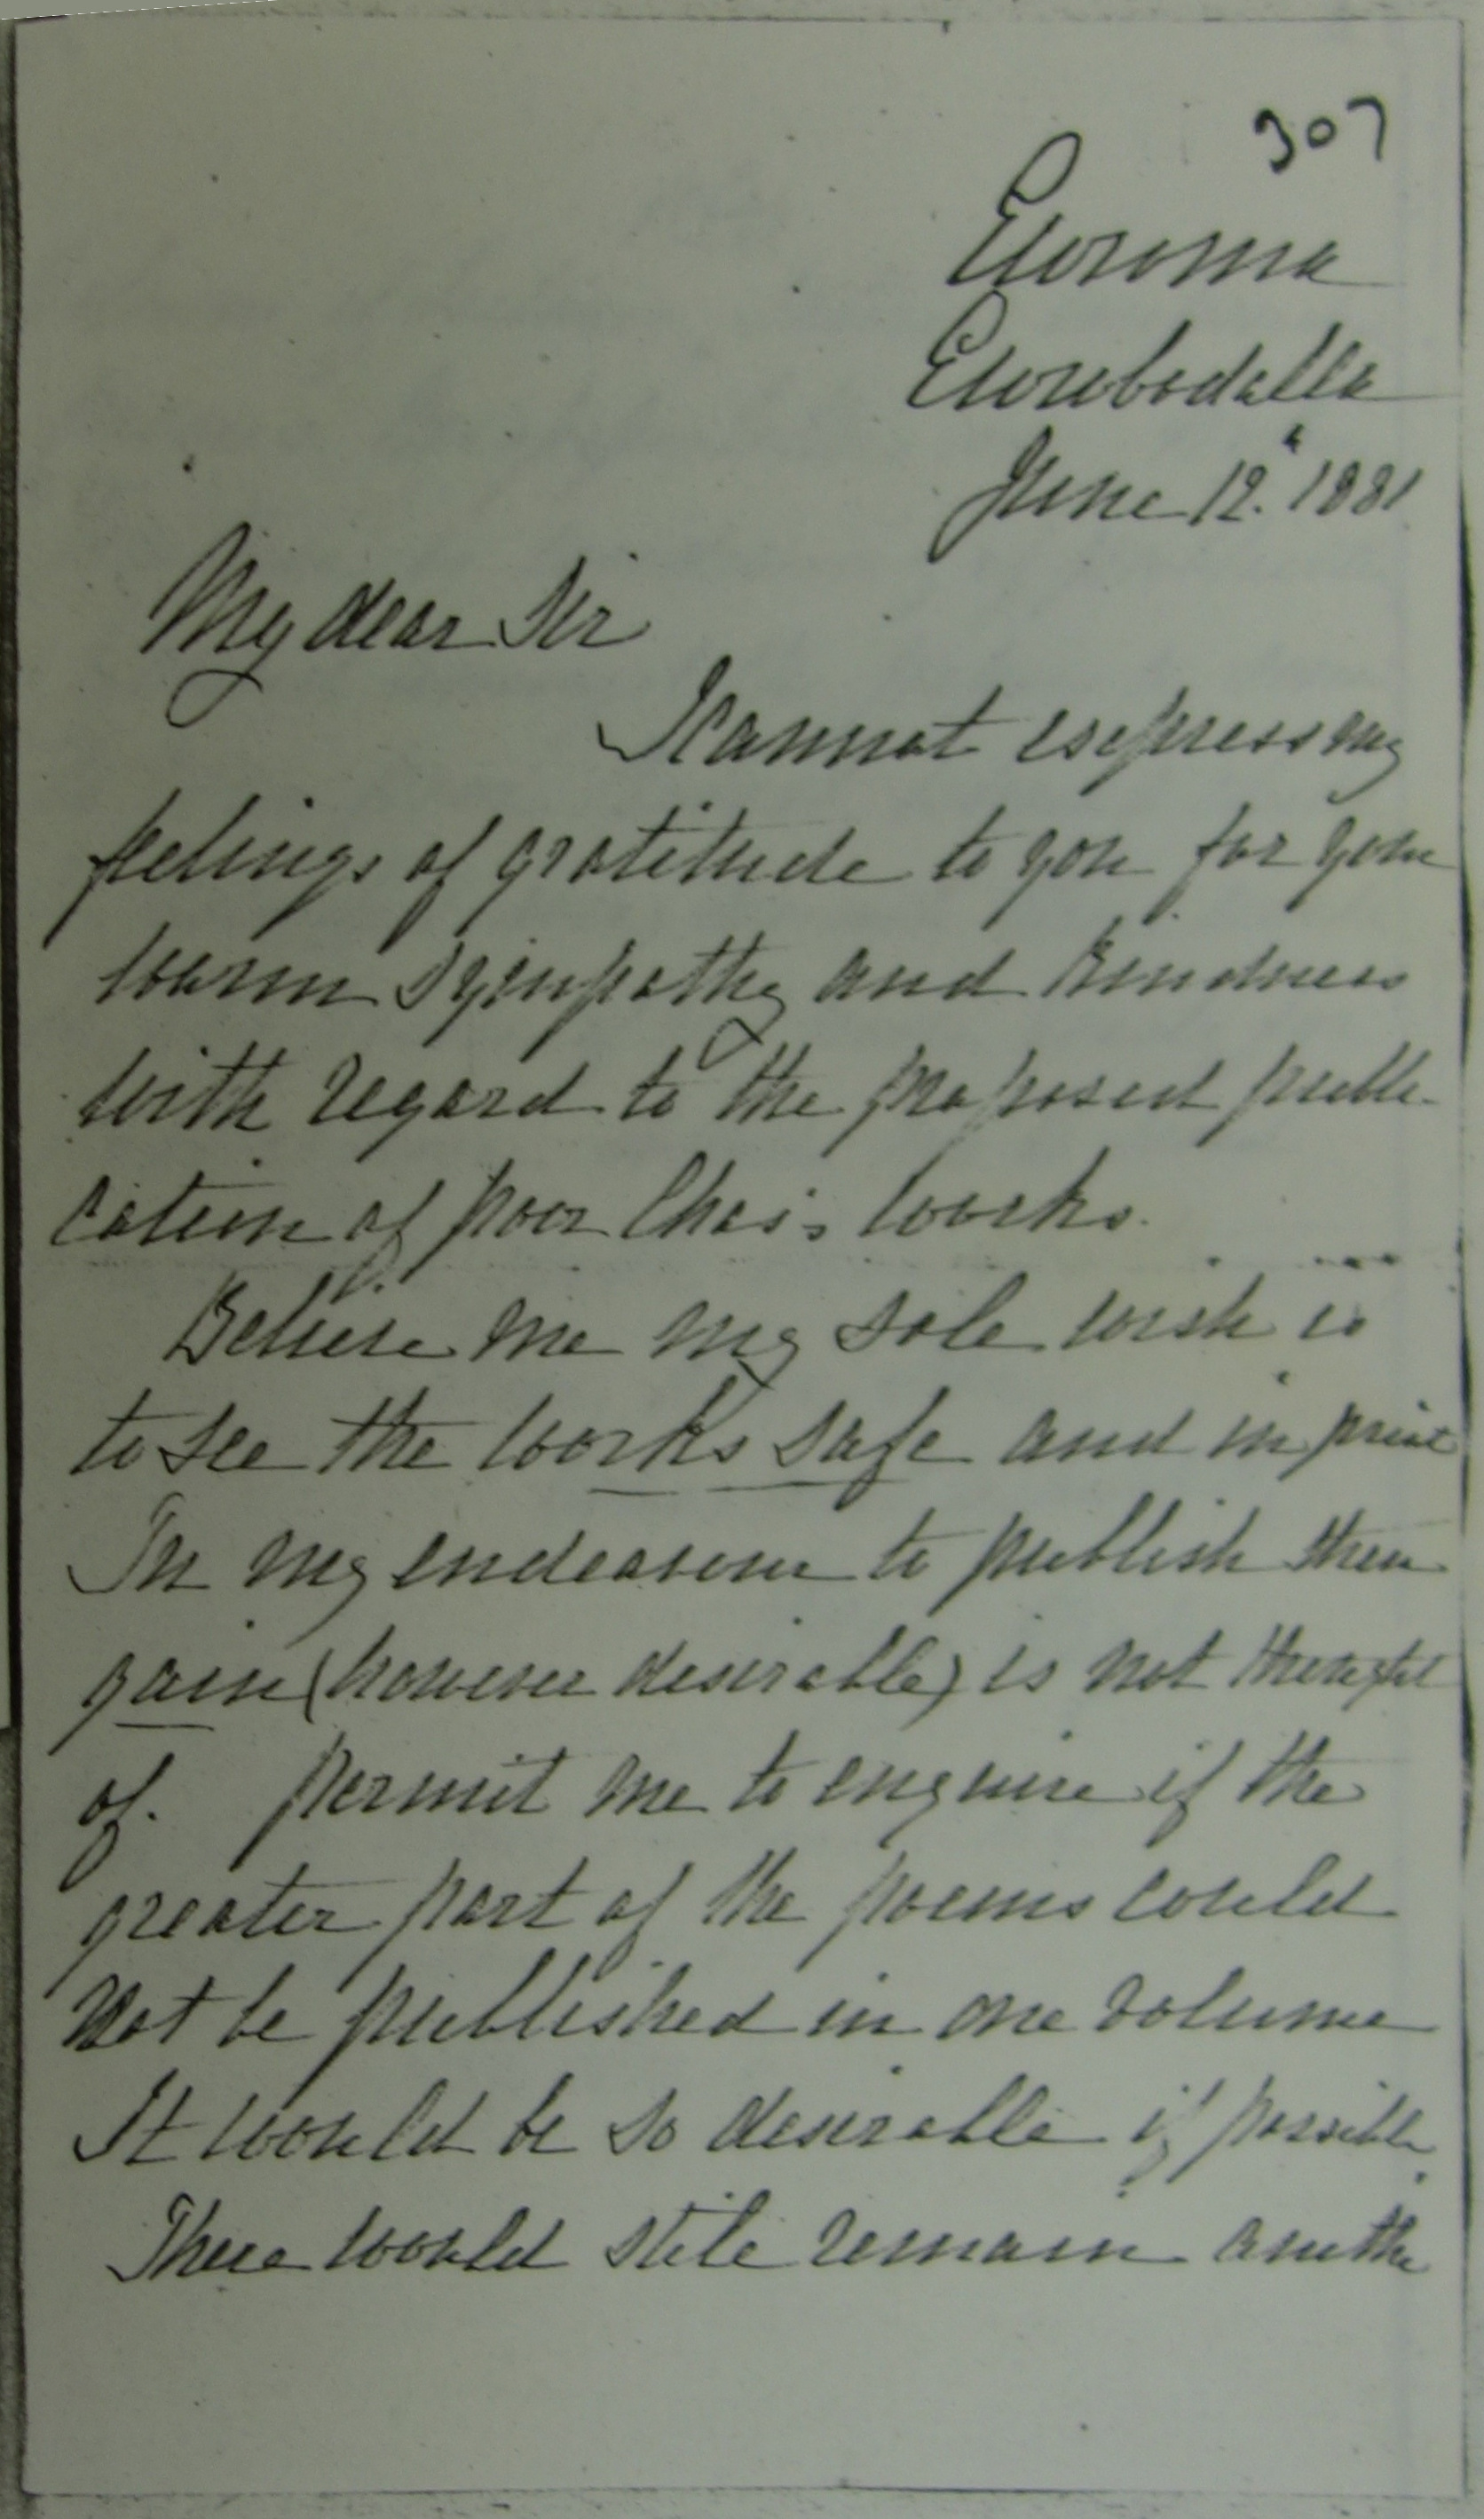 307
Euroma
Eurobodalla
June 12. 1881
My dear Sir
I cannot express my
feelings of gratitude to you for your
warm sympathy and kindness
with regard to the proposed publi-
cation of poor Chas's works.
Believe me my sole wish is
to see the works safe and in print
In my endeavour to publish them
gain (however desirable) is not thought
of. Permit me to enquire if the
greater part of the poems could
not be published in one volume
It would be so desirable if possible
There would still remain another